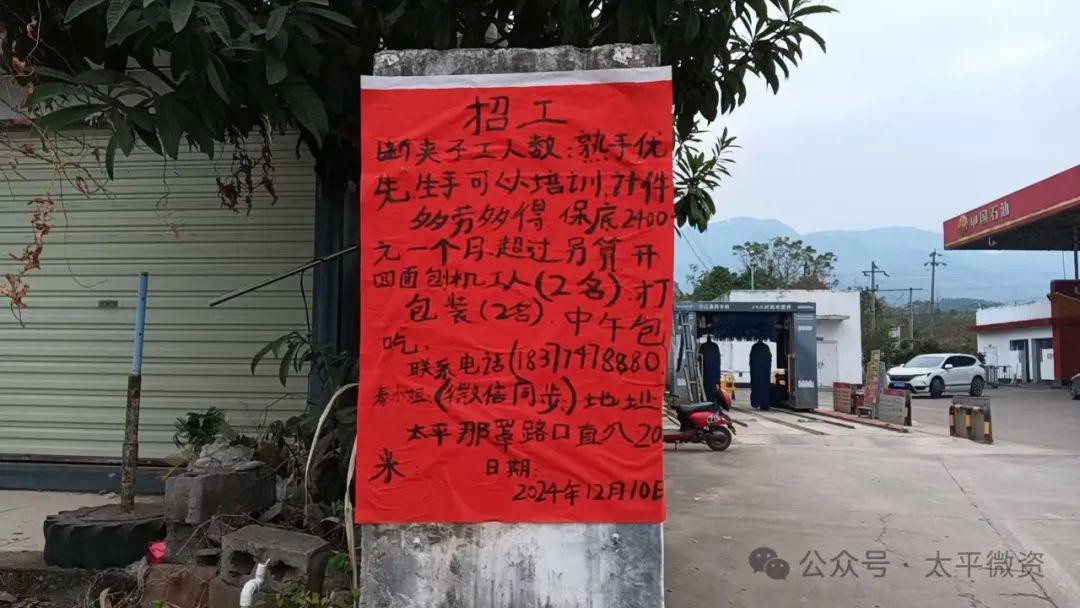 招工
断夹子工人数:熟手优
先.生手可以培训.计件
多劳多得 保底2400
元一个月.超过另算 开
四面刨机工人(2名).打
包装(2名).中午包
吃.
联系电话(18377478880
秦小姐:(微信同步)地址
太平那罩路口直入20
米 日期:
2024年12月10日
中国石油
公众号·太平微资